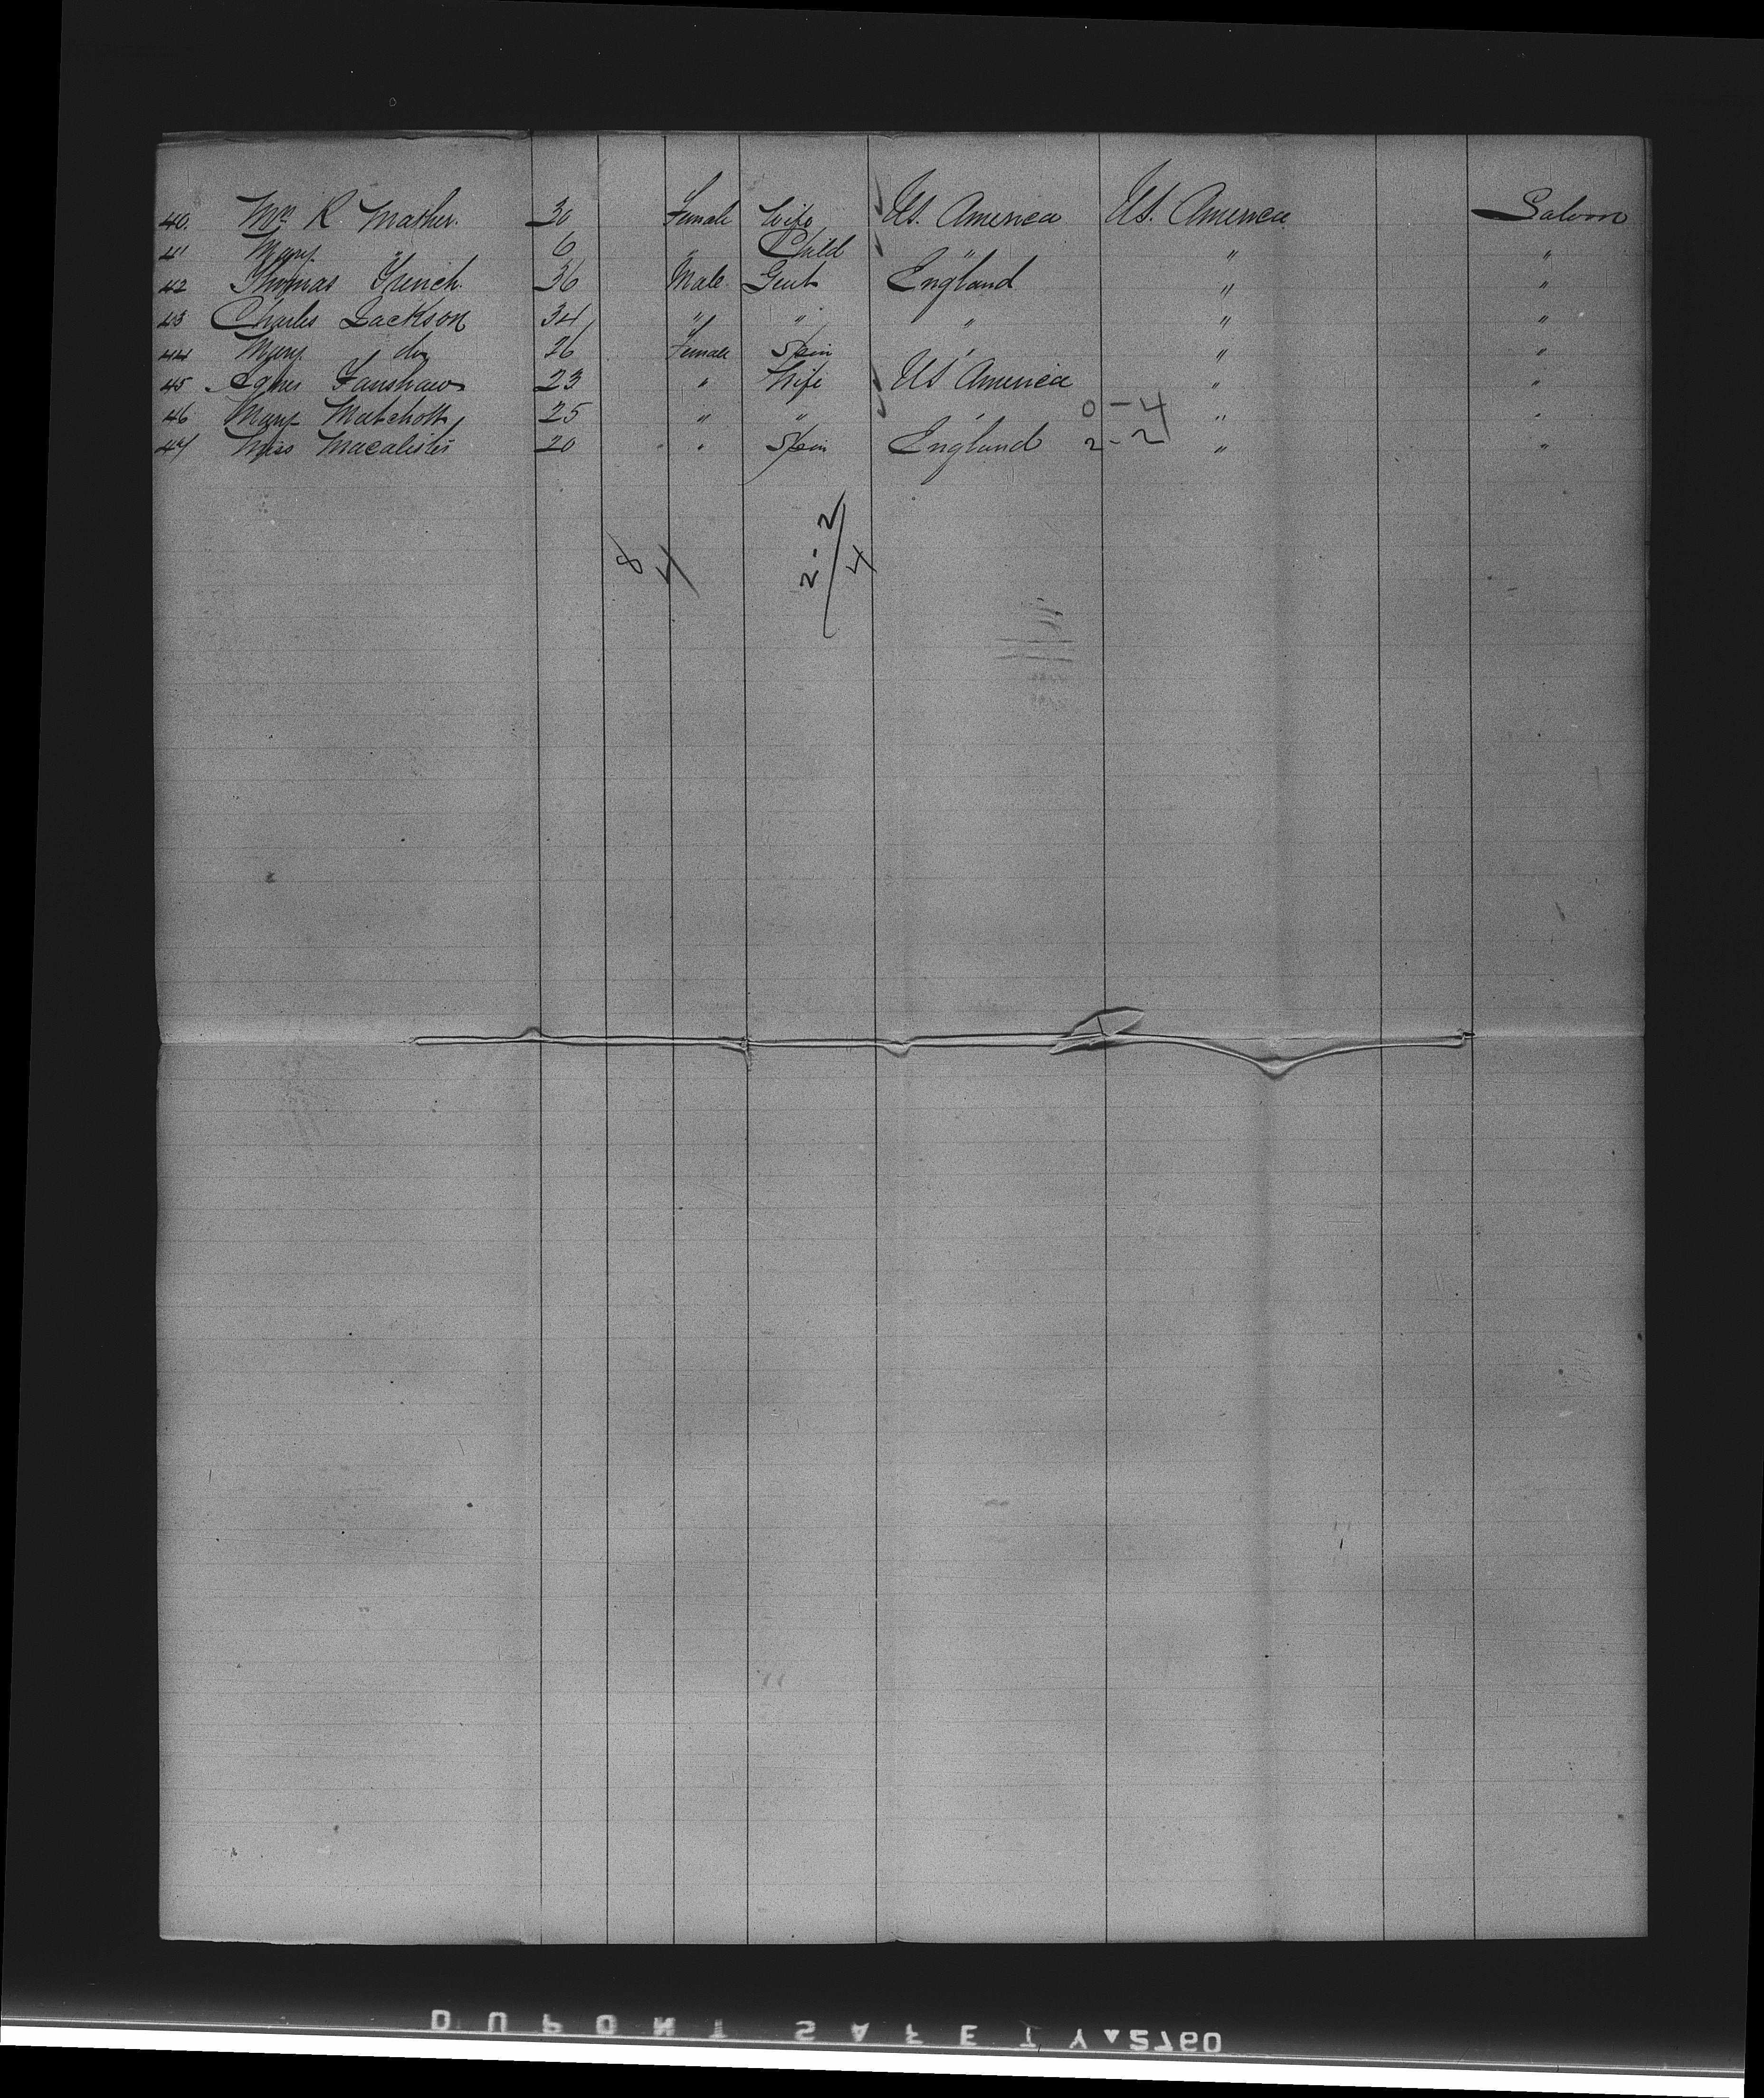 40. Mrs R Mather. 30 Female Wife US. America US. America Saloon
41 Mary " 6 " Child " " "
42 Thomas French. 36 Male Gent England " "
43 Charles Jackson 34 " " " " "
44 Mary do 26 Female Spin " " "
45 Agnes Fanshawe 23 " Wife US America " "
46 Mary 25 " " " 0-4 " "
47 Miss Macalister 20 " Spin England 2-2 " "
8 4 2-2/4
DUPONT SAFETY▲2760